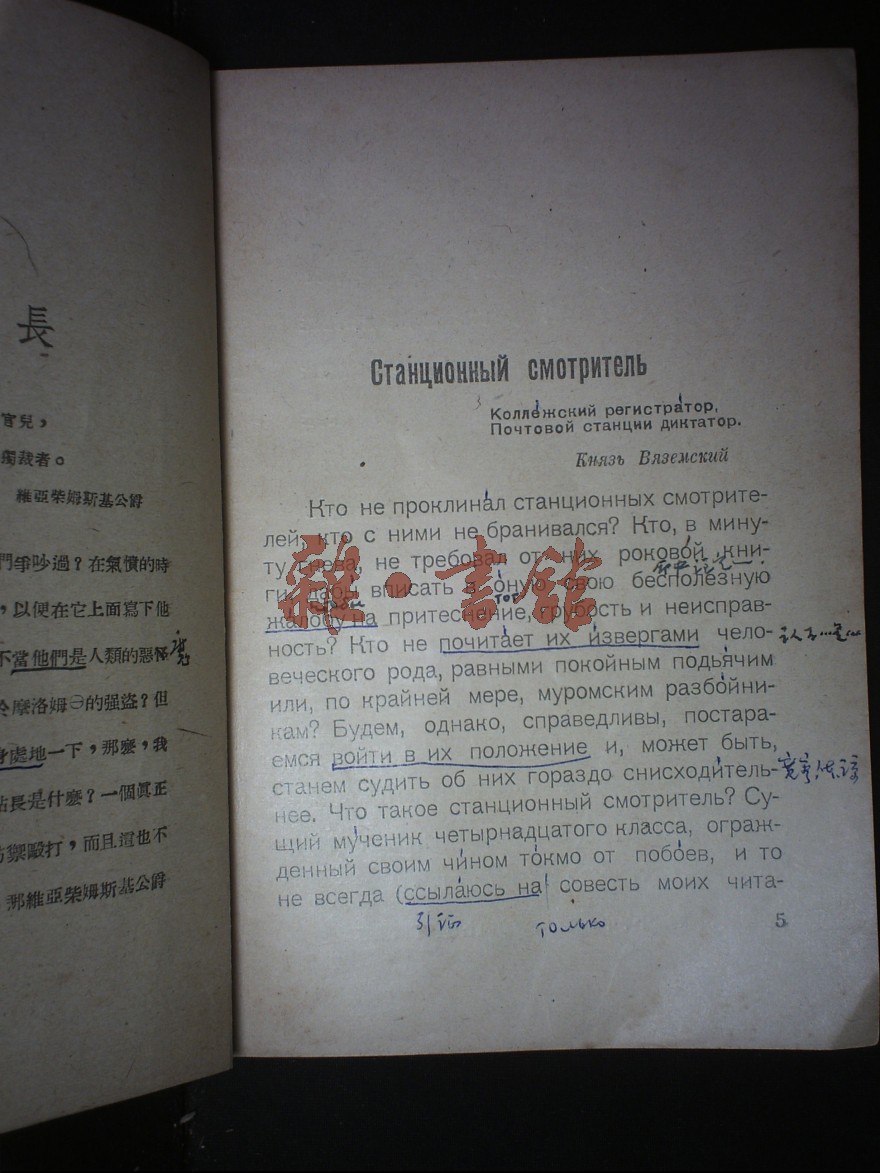 長
官兒，
獨裁者。
維亞榮姆斯基公爵
們爭吵過？在氣憤的時
，以便在它上面寫下他
不當他們是人類的惡怪
於摩洛姆㊀的强盜？但
身處地一下，那麽，我
站長是什麽？一個眞正
防禦毆打，而且這也不
那維亞榮姆斯基公爵
Станционный смотритель
Коллежский регистратор,
Почтовой станции диктатор.
Князь Вяземский
Кто не проклинал станционных смотрите-
лей, кто с ними не бранивался? Кто, в мину-
ту гнева, не требовал от них роковой кни-
ги, дабы вписать в оную свою бесполезную
жалобу на притеснение, грубость и неисправ-
ность? Кто не почитает их извергами чело-
веческого рода, равными покойным подьячим
или, по крайней мере, муромским разбойни-
кам? Будем, однако, справедливы, постара-
емся войти в их положение и, может быть,
станем судить об них гораздо снисходитель-
нее. Что такое станционный смотритель? Су-
щий мученик четырнадцатого класса, ограж-
денный своим чином токмо от побоев, и то
не всегда (ссылаюсь на совесть моих чита-
только
5
雜·書館